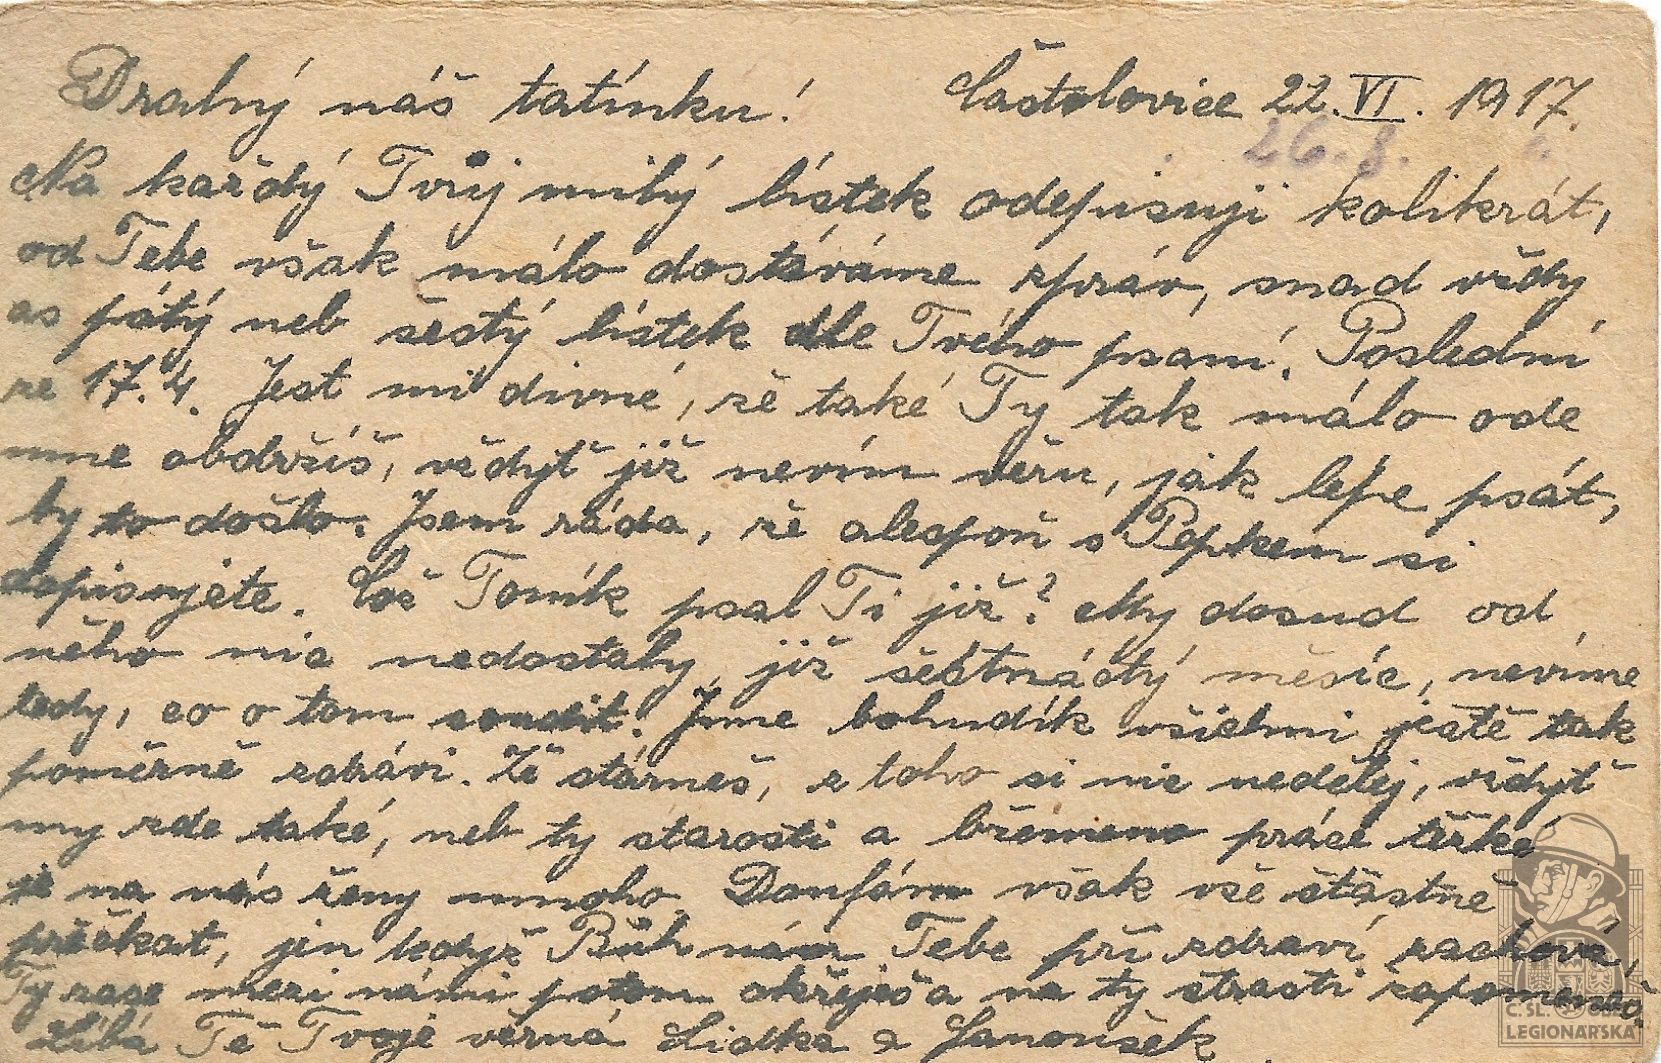 Drahý náš tatínku! Častolovice 22.VI. 1917.
26.8.
Na každý Tvůj milý lístek odepisuji kolikrát,
od Tebe však málo dostáváme zpráv, snad vždy
as pátý neb šestý lístek dle Tvého psaní. Poslední
ze 17.4. Jest mi divné, že také Ty tak málo ode
mne obdržíš, vždyť již nevím věru, jak lépe psát,
by to došlo. Jsem ráda, že alespoň s Pepkem si
dopisujete. Což Toník psal Ti již? My dosud od
něho nic nedostaly, již šestnáctý měsíc, nevíme
tedy, co o tom soudit. Jsme bohudík všichni ještě tak
poměrně zdrávi. Že stárneš, z toho si nic nedělej, vždyť
my zde také, neb ty starosti a břemeno práce těžké
je na nás ženy mnoho. Doufám však vše šťastně
přečkat, jen když Bůh nám Tebe při zdraví zachová,
Ty zase mezi námi potom okřeješ a na ty strasti zapomeneš.
Líbá Tě Tvoje věrná Lidka a Janoušek
Č. SL. OBEC
LEGIONÁŘSKÁ